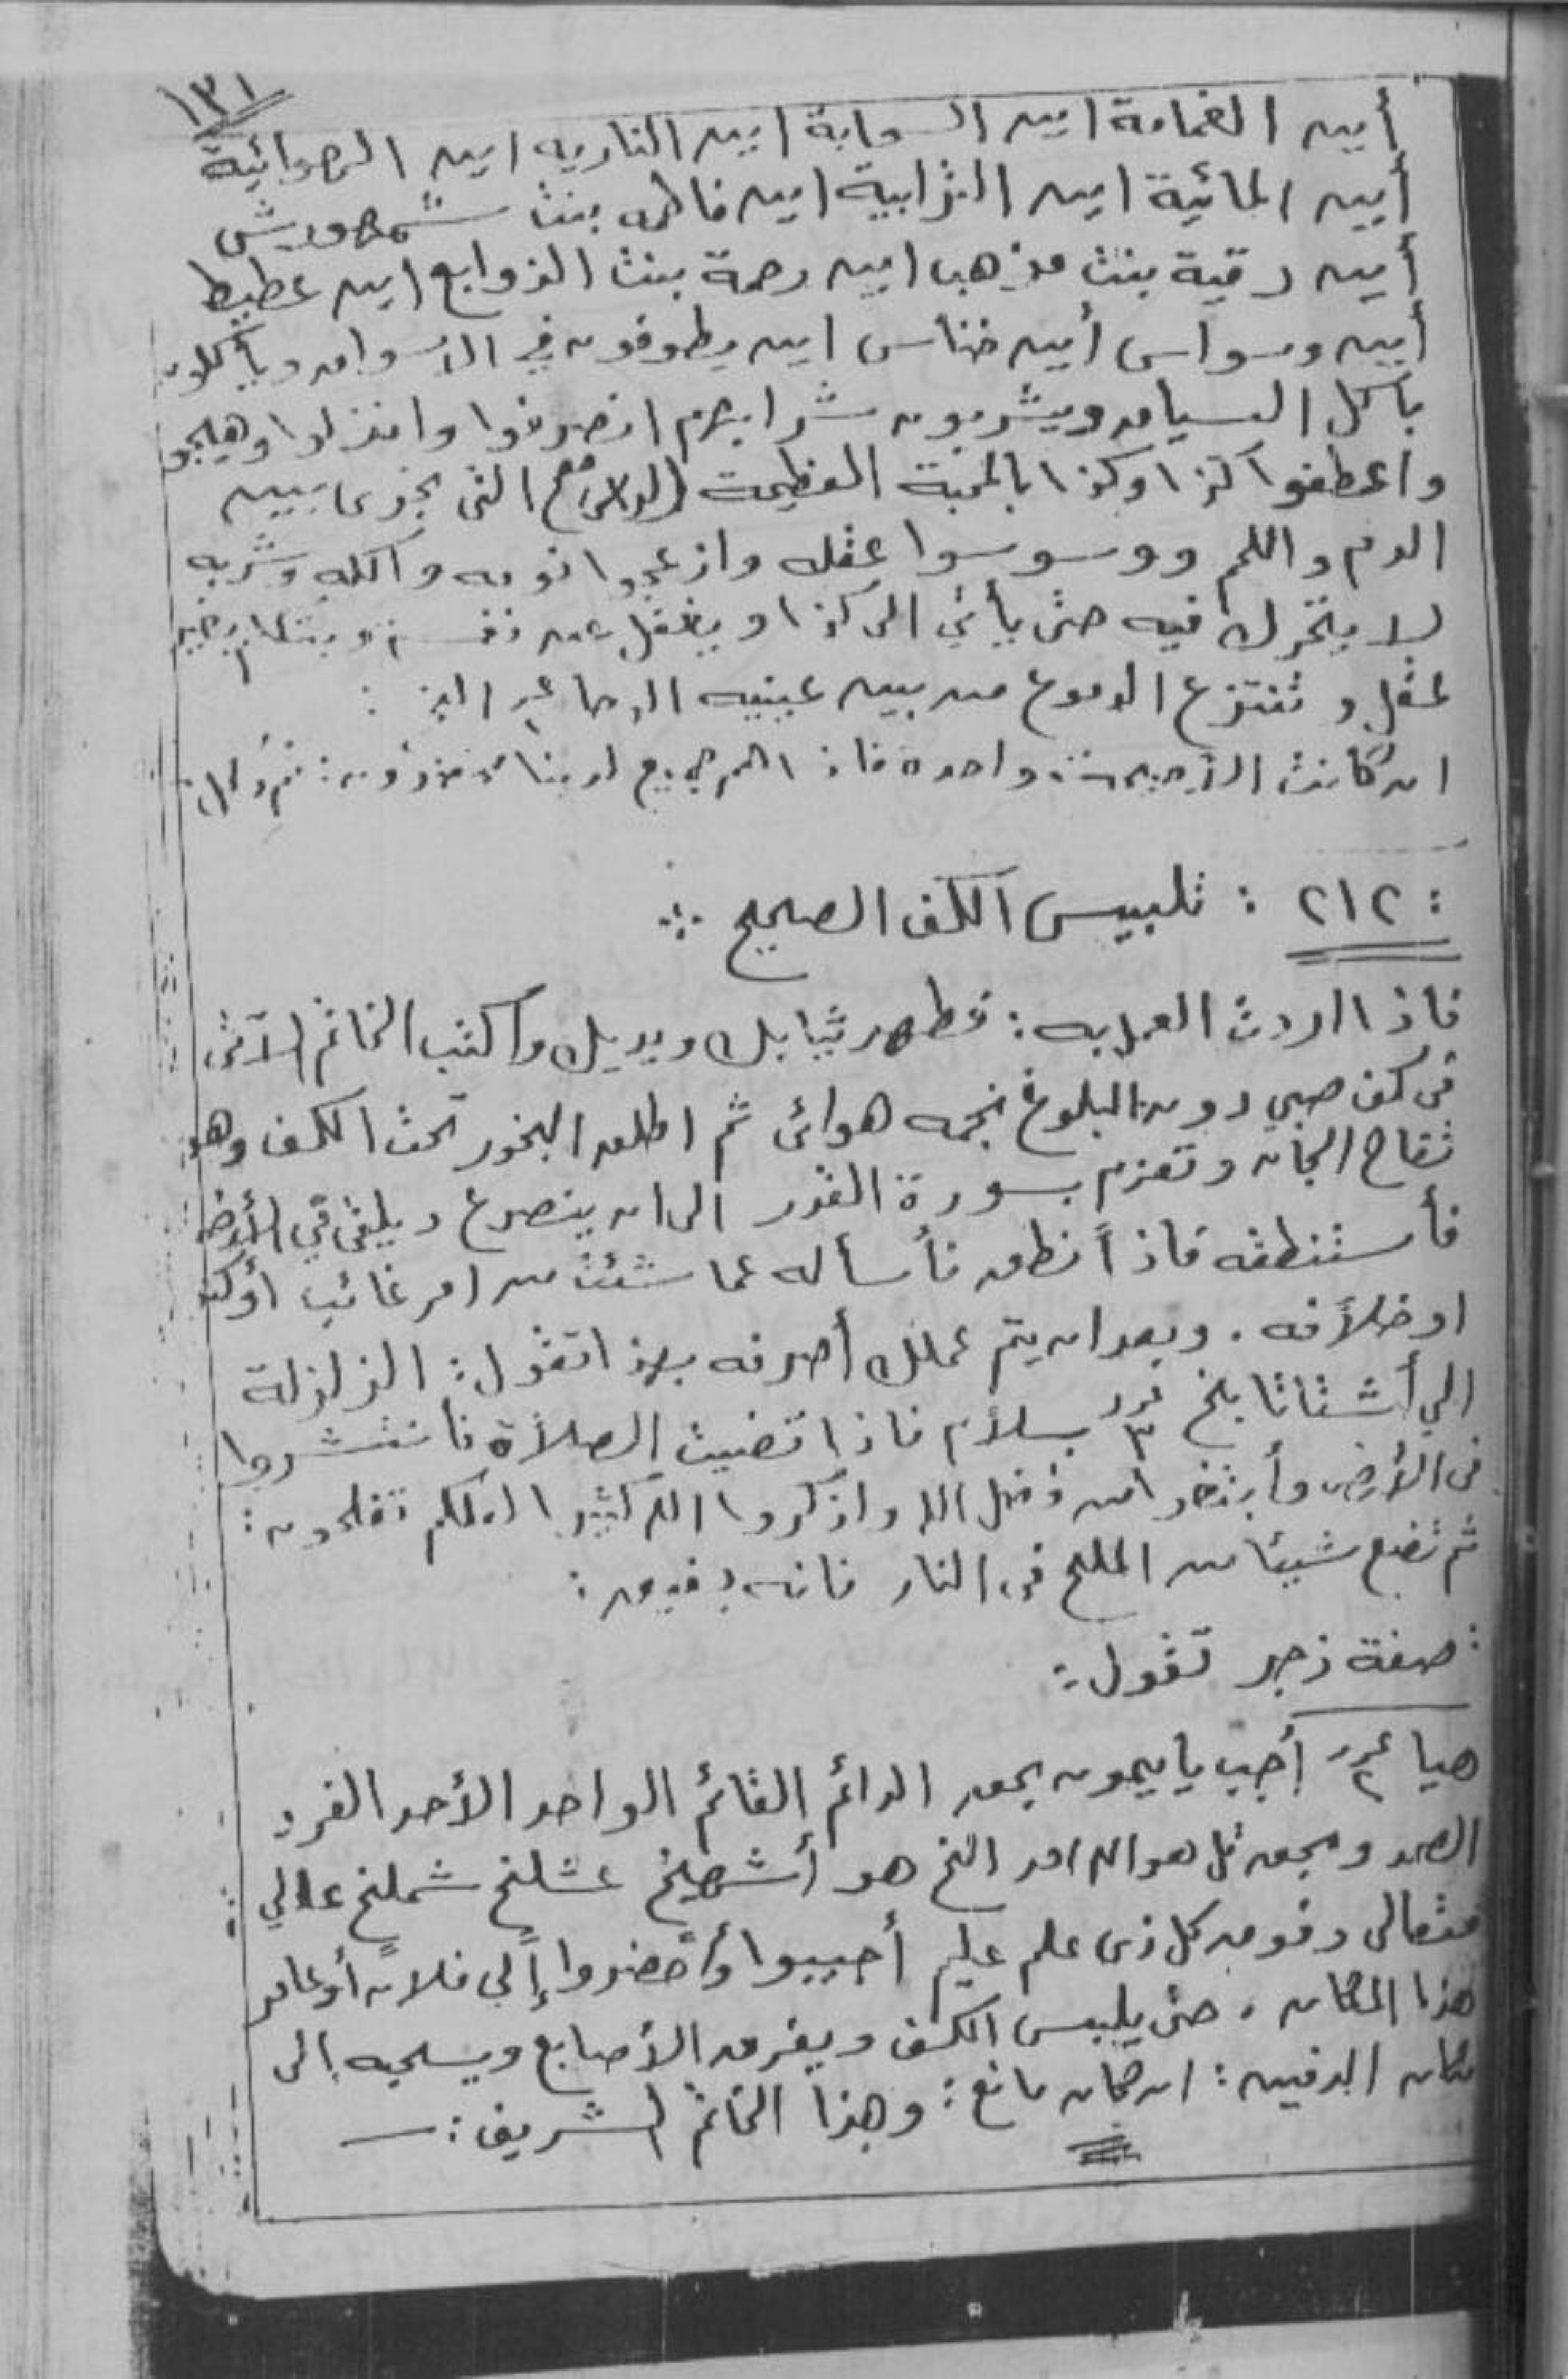 ١٣١
أين الغمامة اين السحابة اين الناريه اين الهوائية
أين المائية اين الترابية اين فاطمه بنت شمهورش
أين رقية بنت مذهب اين رحمة بنت الزوابع اين عطيط
أين وسواس أين خناس اين يطوفون في الاسواق ويأكلون
بأكل السياق ويشربون شرابهم انصرفوا وانزلوا وهيجو
واعطفوا كذا وكذا بالمحبة العظيمة التى تجرى بين
الدم واللحم ووسوسوا عقله وازعجوا نومه وأكله وشربه
لا يتحرك فيه حتى يأتي الى كذا ويغفل عن نفسه ويتكلم بغير
عقل وتنتزع الدموع من بين عينيه :
ان كانت الا صيحة واحدة فاذا هم جميع لدينا محضرون :
: ٢١٢ : تلبيس الكف الصحيح ∴
فاذا اردت العمل به : فطهر ثيابك ويديك واكتب الخاتم الآتى
فى كف صبي دون البلوغ نجمه هوائى ثم اطلق البخور تحت الكف وهو
تفاح الجان وتعزم بسورة القدر الى ان ينصرع ويلقى في الأرض
فأستنطقه فاذاً نطق فأساله عما شئت من امر غائب أو كنز
او خلاًفه . وبعد ان يتم عملك أصرفه بهذا تقول : الزلزلة
الي أشتاتا بلخ عدد ٣ بسلام فاذا قضيت الصلاة فانتشروا
فى الأرض وأبتغوا من فضل الله واذكروا الله كثيرا لعلكم تفلحون :
ثم تضع شيئا من الملح فى النار فانه يفيق :
: صفة زجر تقول :
هيا عدد ٢ أجب يا ميمون بحق الدائم القائم الواحد الأحد الفرد
الصمد وبحق قل هو الله احد الخ هو أشهيخ عشلخ شملخ عالي
متعالى وفوق كل ذى علم عليم أجيبوا وأحضروا إلى فلان أو عامر
هذا المكان . حتى يلبس الكف ويفرق الأصابع ويسحبه إلى
مكان الدفين : ان كان مانع : وهذا الخاتم الشريف : —